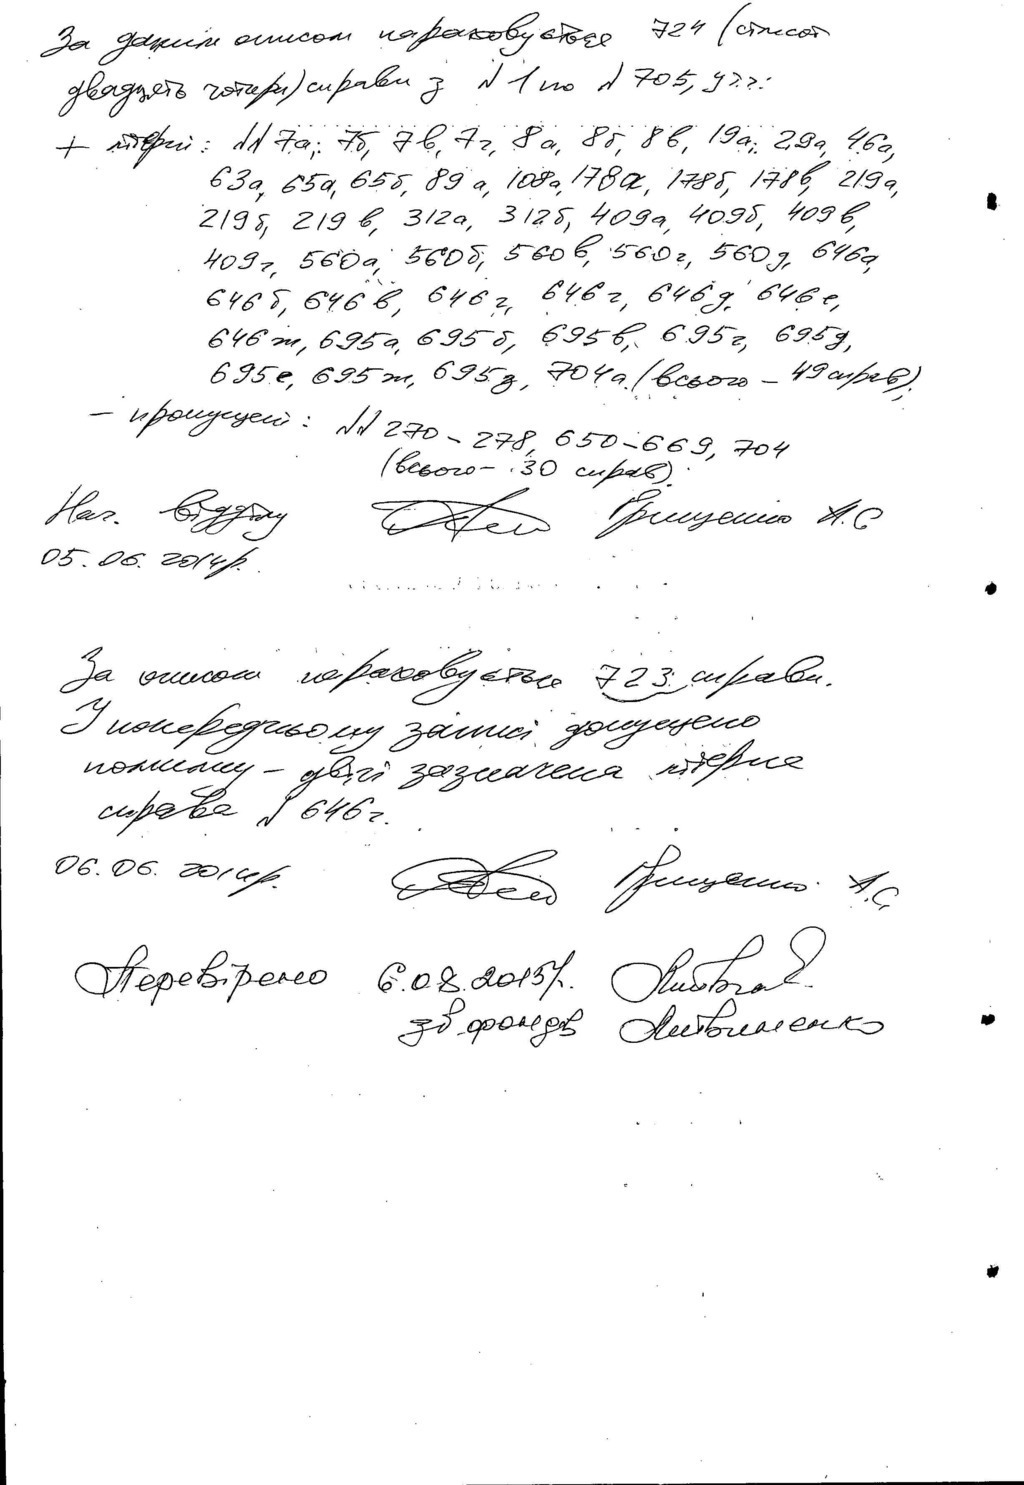 За даним описом нараховується 724 (сімсот
двадцять чотири) справи з № 1 по № 705, у т.г.:
+ літерні: №№ 7а, 7б, 7в, 7г, 8а, 8б, 8в, 19а, 29а, 46а,
63а, 65а, 65б, 89а, 108а, 178а, 178б, 178в, 219а,
219б, 219в, 312а, 312б, 409а, 409б, 409в,
409г, 560а, 560б, 560в, 560г, 560д, 646а,
646б, 646в, 646г, 646г, 646д, 646е,
646ж, 695а, 695б, 695в, 695г, 695д,
695е, 695ж, 695з, 704а (всього – 49 справ);
– пропущені: №№ 270-278, 650-669, 704
(всього – 30 справ).
Нач. відділу Грищенко А.С
05.06.2014р.
За описом нараховується 723 справи.
У попередньому записі допущено
помилку – двічі зазначена літерна
справа № 646г.
06.06.2014р. Грищенко А.С.
Перевірено 6.08.2015р.
зб. фондів Литвиненко